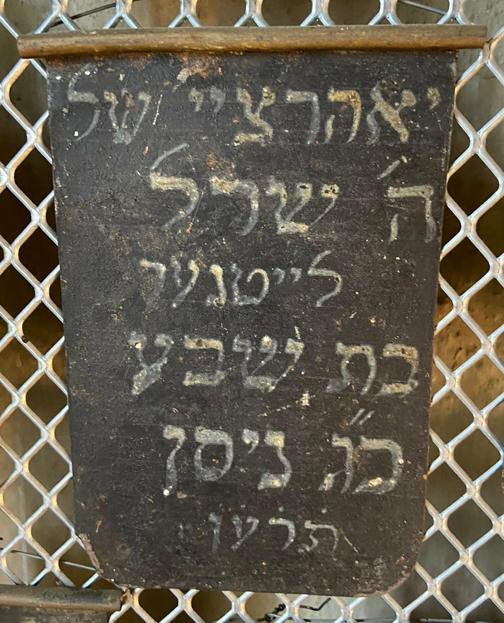 יאהרציי׳ של
ה׳ ישרל
לייטנער
בת שבע
כ״ג ניסן
תרען